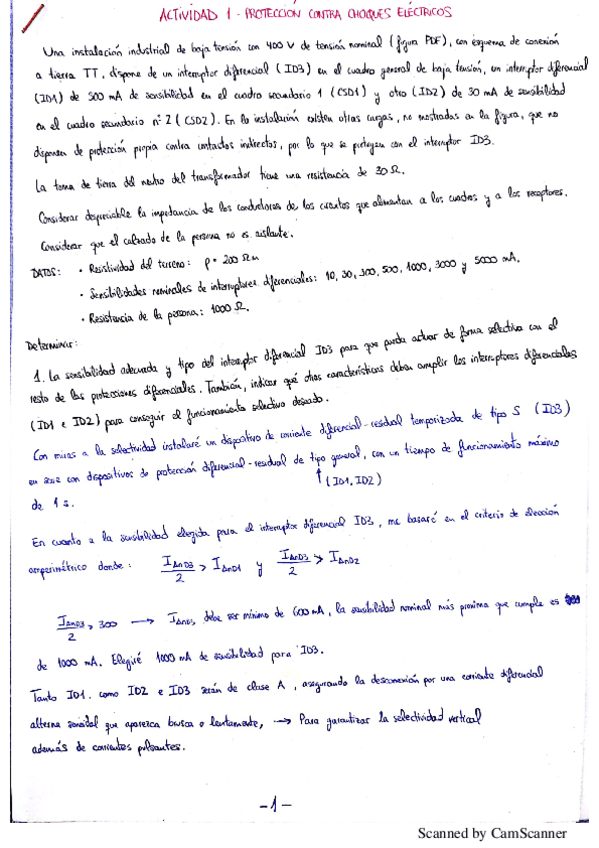 ACTIVIDAD 1 - PROTECCIÓN CONTRA CHOQUES ELÉCTRICOS
Una instalación industrial de baja tensión con 400 V de tensión nominal (figura PDF), con esquema de conexión
a tierra TT, dispone de un interruptor diferencial (ID3) en el cuadro general de baja tensión, un interruptor diferencial
(ID1) de 300 mA de sensibilidad en el cuadro secundario 1 (CSD1) y otro (ID2) de 30 mA de sensibilidad
en el cuadro secundario nº 2 (CSD2). En la instalación existen otras cargas, no mostradas en la figura, que no
disponen de protección propia contra contactos indirectos, por lo que se protegen con el interruptor ID3.
La toma de tierra del neutro del transformador tiene una resistencia de 30 Ω.
Considerar despreciable la impedancia de los conductores de los circuitos que alimentan a los cuadros y a los receptores.
Considerar que el calzado de la persona no es aislante.
DATOS: • Resistividad del terreno: ρ = 200 Ω m
• Sensibilidades nominales de interruptores diferenciales: 10, 30, 300, 500, 1000, 3000 y 5000 mA.
• Resistencia de la persona: 1000 Ω.
Determinar:
1. La sensibilidad adecuada y tipo del interruptor diferencial ID3 para que pueda actuar de forma selectiva con el
resto de las protecciones diferenciales. También, indicar qué otras características deben cumplir los interruptores diferenciales
(ID1 e ID2) para conseguir el funcionamiento selectivo deseado.
Con miras a la selectividad instalaré un dispositivo de corriente diferencial-residual temporizada de tipo S (ID3)
en serie con dispositivos de protección diferencial-residual de tipo general, con un tiempo de funcionamiento máximo
↑ (ID1, ID2)
de 1 s.
En cuanto a la sensibilidad elegida para el interruptor diferencial ID3, me basaré en el criterio de elección
amperimétrico donde: IΔnD3/2 > IΔnD1 y IΔnD3/2 > IΔnD2
IΔnD3/2 > 300 → IΔnD3 debe ser mínimo de 600 mA, la sensibilidad nominal más proxima que cumple es
de 1000 mA. Elegiré 1000 mA de sensibilidad para ID3.
Tanto ID1. como ID2 e ID3 serán de clase A, asegurando la desconexión por una corriente diferencial
alterna senoidal que aparezca brusca o lentamente, → Para garantizar la selectividad vertical
además de corrientes pulsantes.
-1-
Scanned by CamScanner